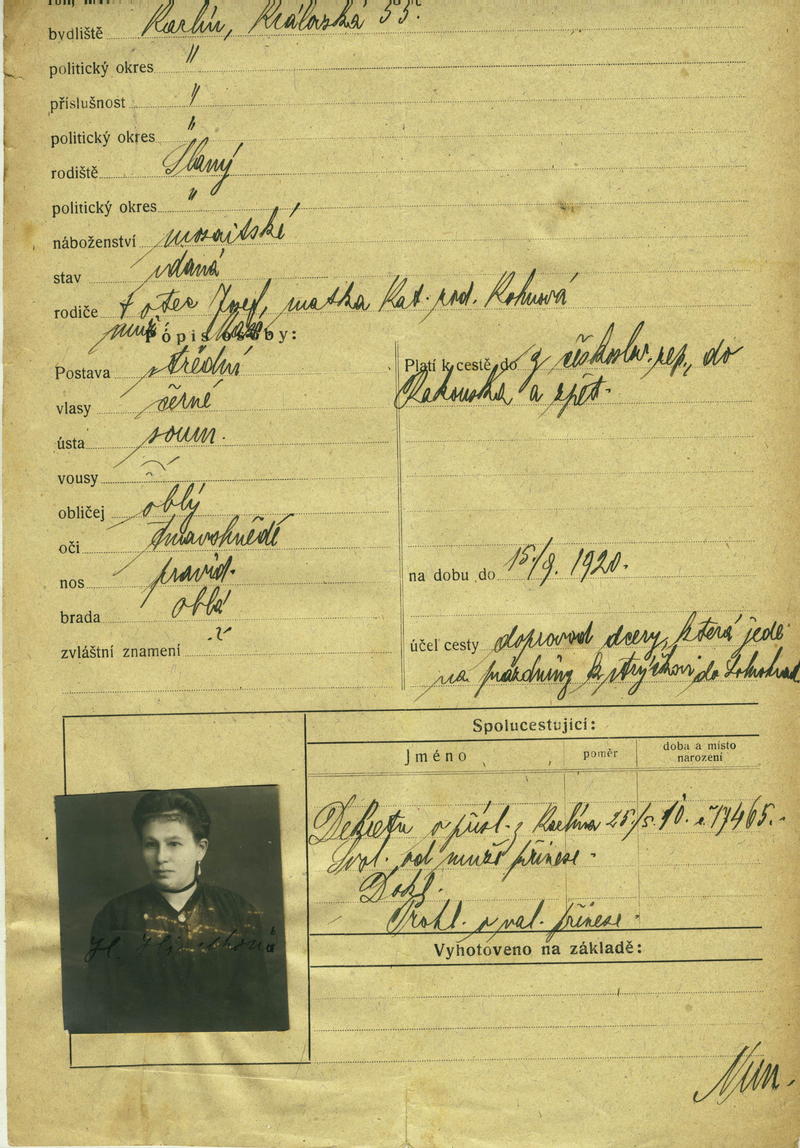 bydliště Karlín, Královská 55.
politický okres "
příslušnost "
politický okres "
rodiště Slaný
politický okres "
náboženství mosaitské
stav vdaná
rodiče † otec Josef, matka Kat. rod. Kohnová
muž
Popis osoby:
Postava střední
vlasy černé
ústa soum.
vousy
obličej oblý
oči tmavohnědé
nos pravid.
brada oblá
zvláštní znamení
Platí k cestě do z českoslov. rep., do
Rakouska a zpět.
na dobu do 15./9. 1920.
účel cesty doprovod dcery, která jede
na prázdniny k strýčkovi do
Spolucestující:
Jméno poměr doba a místo narození
o přísl. z Karlína 25./5. 10. č. 17465.
Svol. od muže přinese.
Dokl.
Prohl. o val. přinese.
Vyhotoveno na základě: